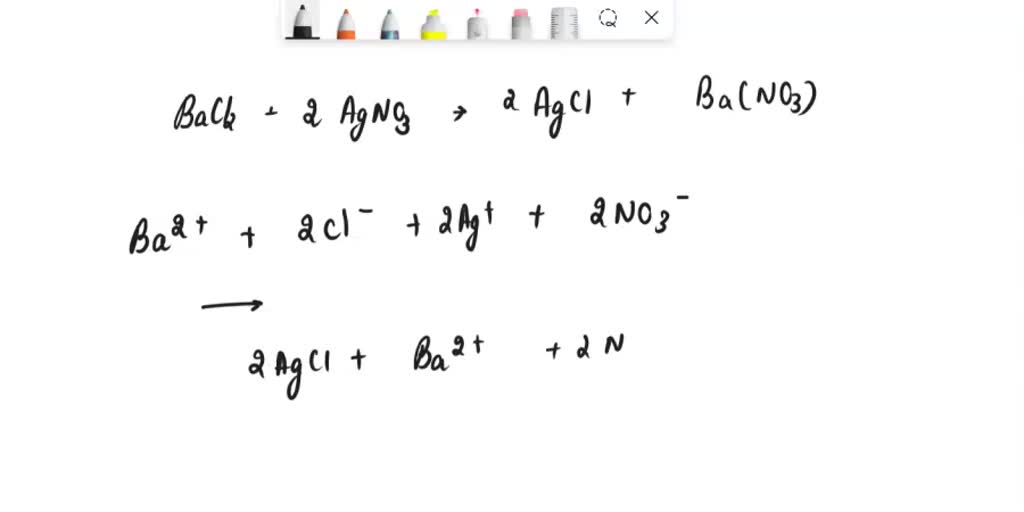 BaCl2 + 2 AgNO3 → 2 AgCl + Ba(NO3)
Ba2+ + 2Cl- + 2Ag+ + 2NO3-
→
2AgCl + Ba2+ + 2N